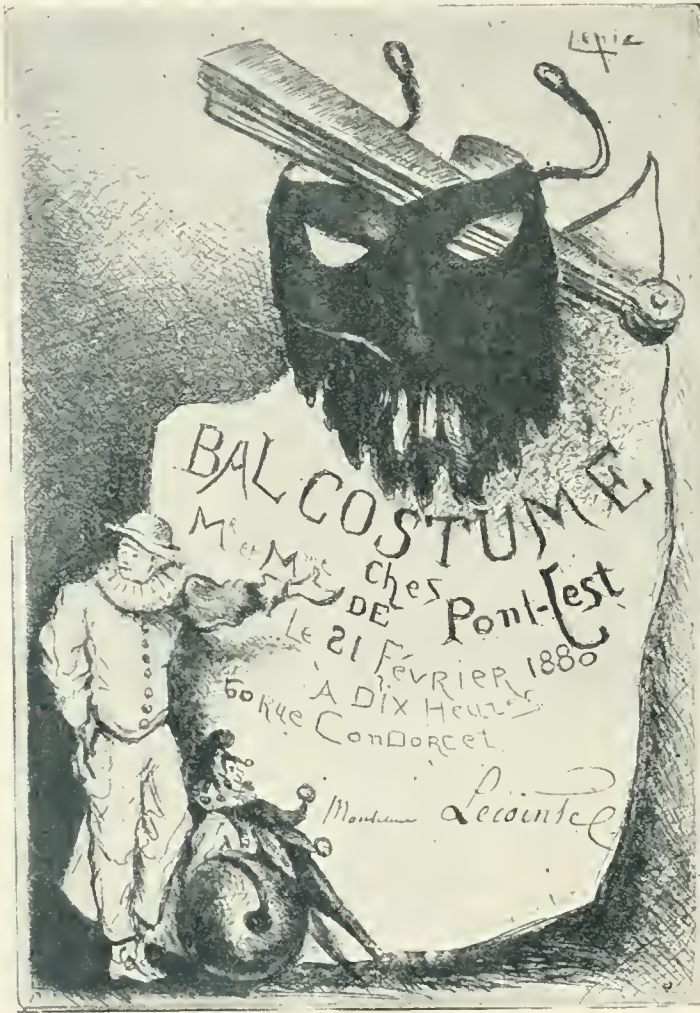 Lepic
BAL COSTUME
Mr et Mme
Ches
DE Pont-Jest
Le 21 Février 1880
A Dix Heures
60 Rue Condorcet
Monsieur Lecointe